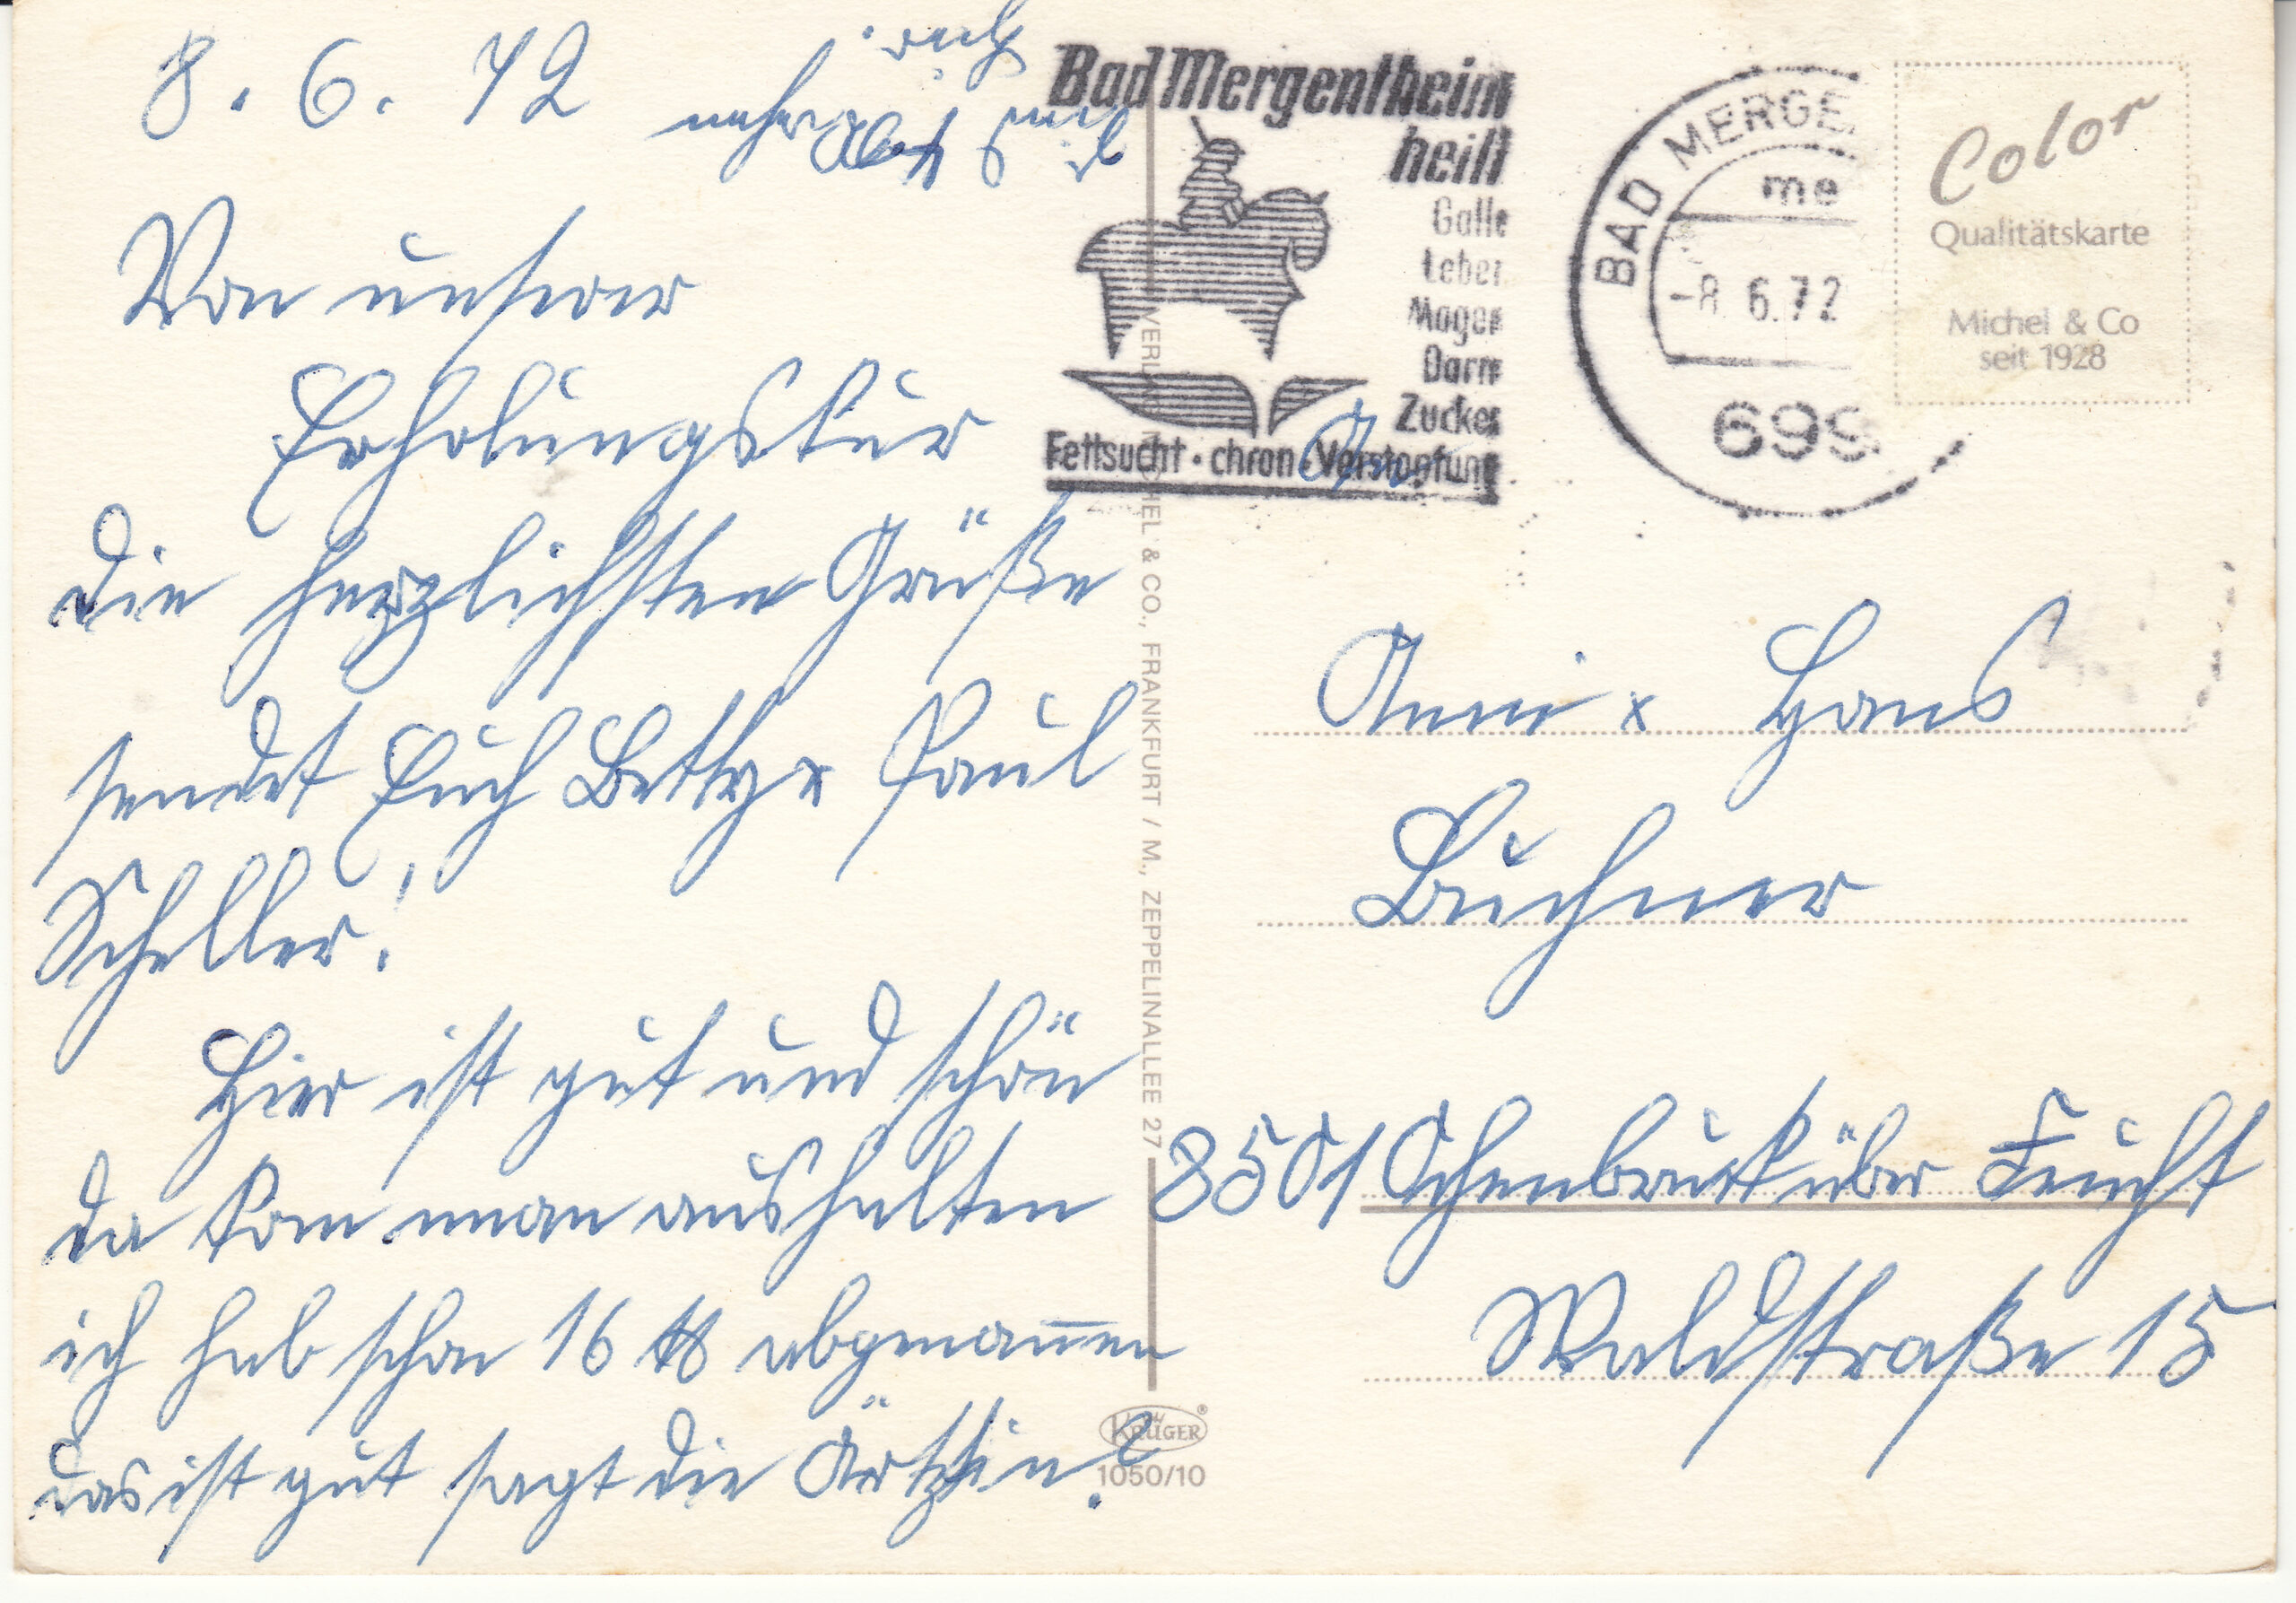 8. 6. 72
Von unserer
Erholungskur
die herzlichsten Grüße
sendet Euch Betty x Paul
Scheller!
Hier ist gut und schön
da kom man aushalten
ich hab schon 16 ℔ abgenom̄en
das ist gut sagt die Ärtztin!
Bad Mergentheim
heilt
Galle
Leber
Magen
Darm
Zucker
Fettsucht · chron. Verstopfung
BAD MERGE
me
-8. 6.72
699
Color
Qualitätskarte
Michel & Co
seit 1928
VERLAG MICHEL & CO., FRANKFURT / M., ZEPPELINALLEE 27
An
Anni x Hans
Büchner
8501 Ochenbruck über Feucht
Waldstraße 15
KRÜGER
1050/10